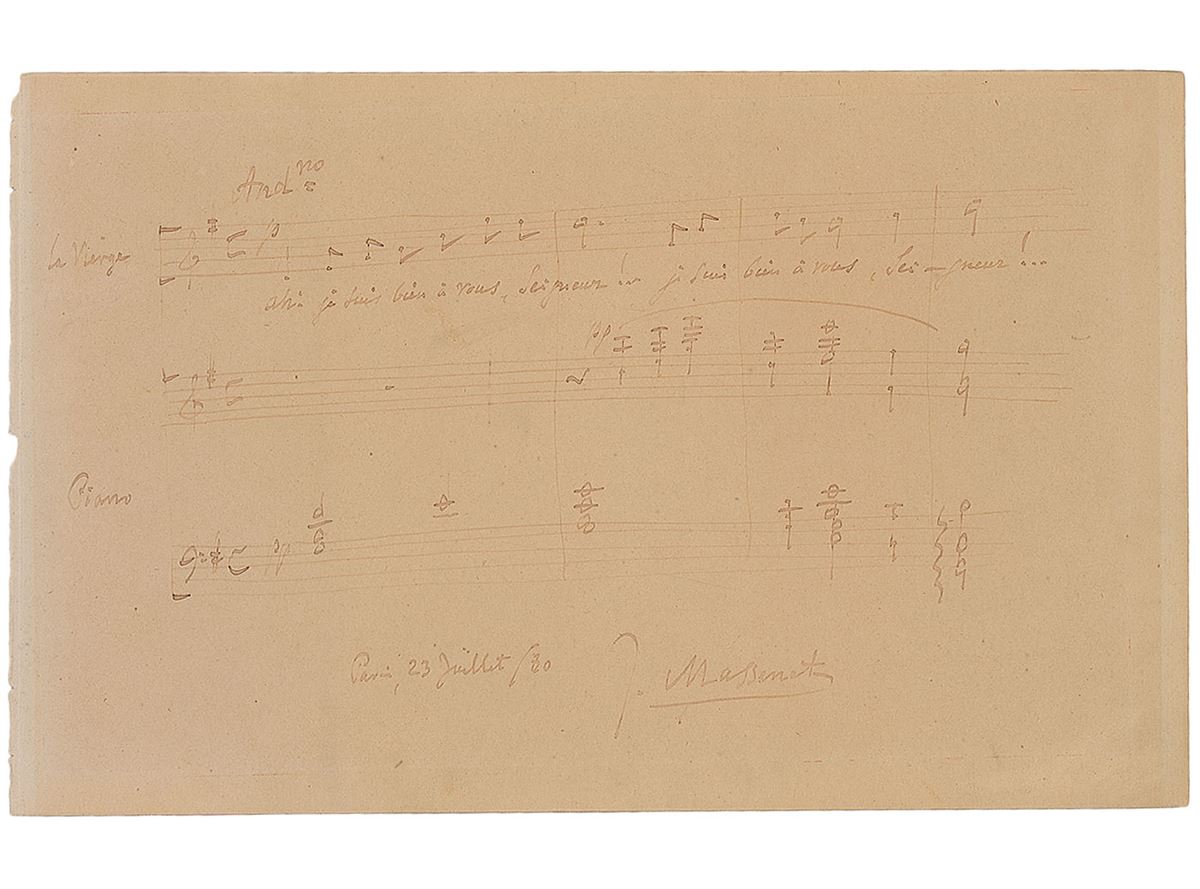 And.no
La Vierge
p
ah! je suis bien à vous, Seigneur!.. je suis bien à vous, Sei-gneur!...
pp
Piano
pp
Paris, 23 Juillet /80
J. Massenet